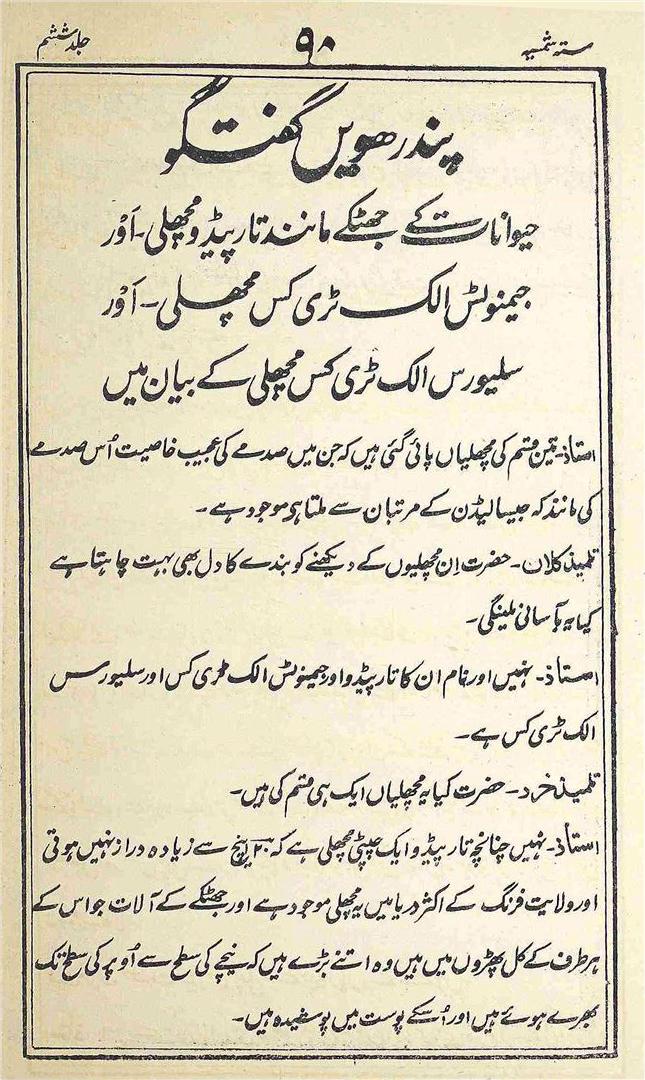 ستہ شمسیہ ۹۰ جلد ششم
پندرھویں گفتگو
حیوانات کے جھٹکے مانند تارپیڈو مچھلی ۔ اَوْر
جیمنوٹس الک ٹری کس مچھلی ۔ اَوْر
سلیورس الک ٹری کس مچھلی کے بیان میں
استاذ ۔ تین قسم کی مچھلیاں پائی گئی ہیں کہ جن میں صدمے کی عجیب خاصیت اُس صدمے
کی مانند کہ جیسا لیڈن کے مرتبان سے ملتا ہی موجود ہے ۔
تلمیذ کلان ۔ حضرت اِن مچھلیوں کے دیکھنے کو بندے کا دل بھی بہت چاہتا ہے
کیا یہ بآسانی ملینگی ۔
استاذ ۔ نہیں اور نام ان کا تارپیڈو اور جیمنوٹس الک ٹری کس اور سلیورس
الک ٹری کس ہے ۔
تلمیذ خرد ۔ حضرت کیا یہ مچھلیاں ایک ہی قسم کی ہیں ۔
استاذ ۔ نہیں چنانچہ تارپیڈو ایک چپٹی مچھلی ہے کہ ۲۰ اِنچ سے زیادہ دراز نہیں ہوتی
اور ولایت فرنگ کے اکثر دریا میں یہ مچھلی موجود ہے اور جھٹکے کے آلات جو اس کے
ہر طرف کے کل پھڑوں میں ہیں وہ اتنے بڑے ہیں کہ نیچے کی سطح سے اُوپر کی سطح تک
بھرے ہوئے ہیں اور اُسکے پوست میں پوشیدہ ہیں ۔